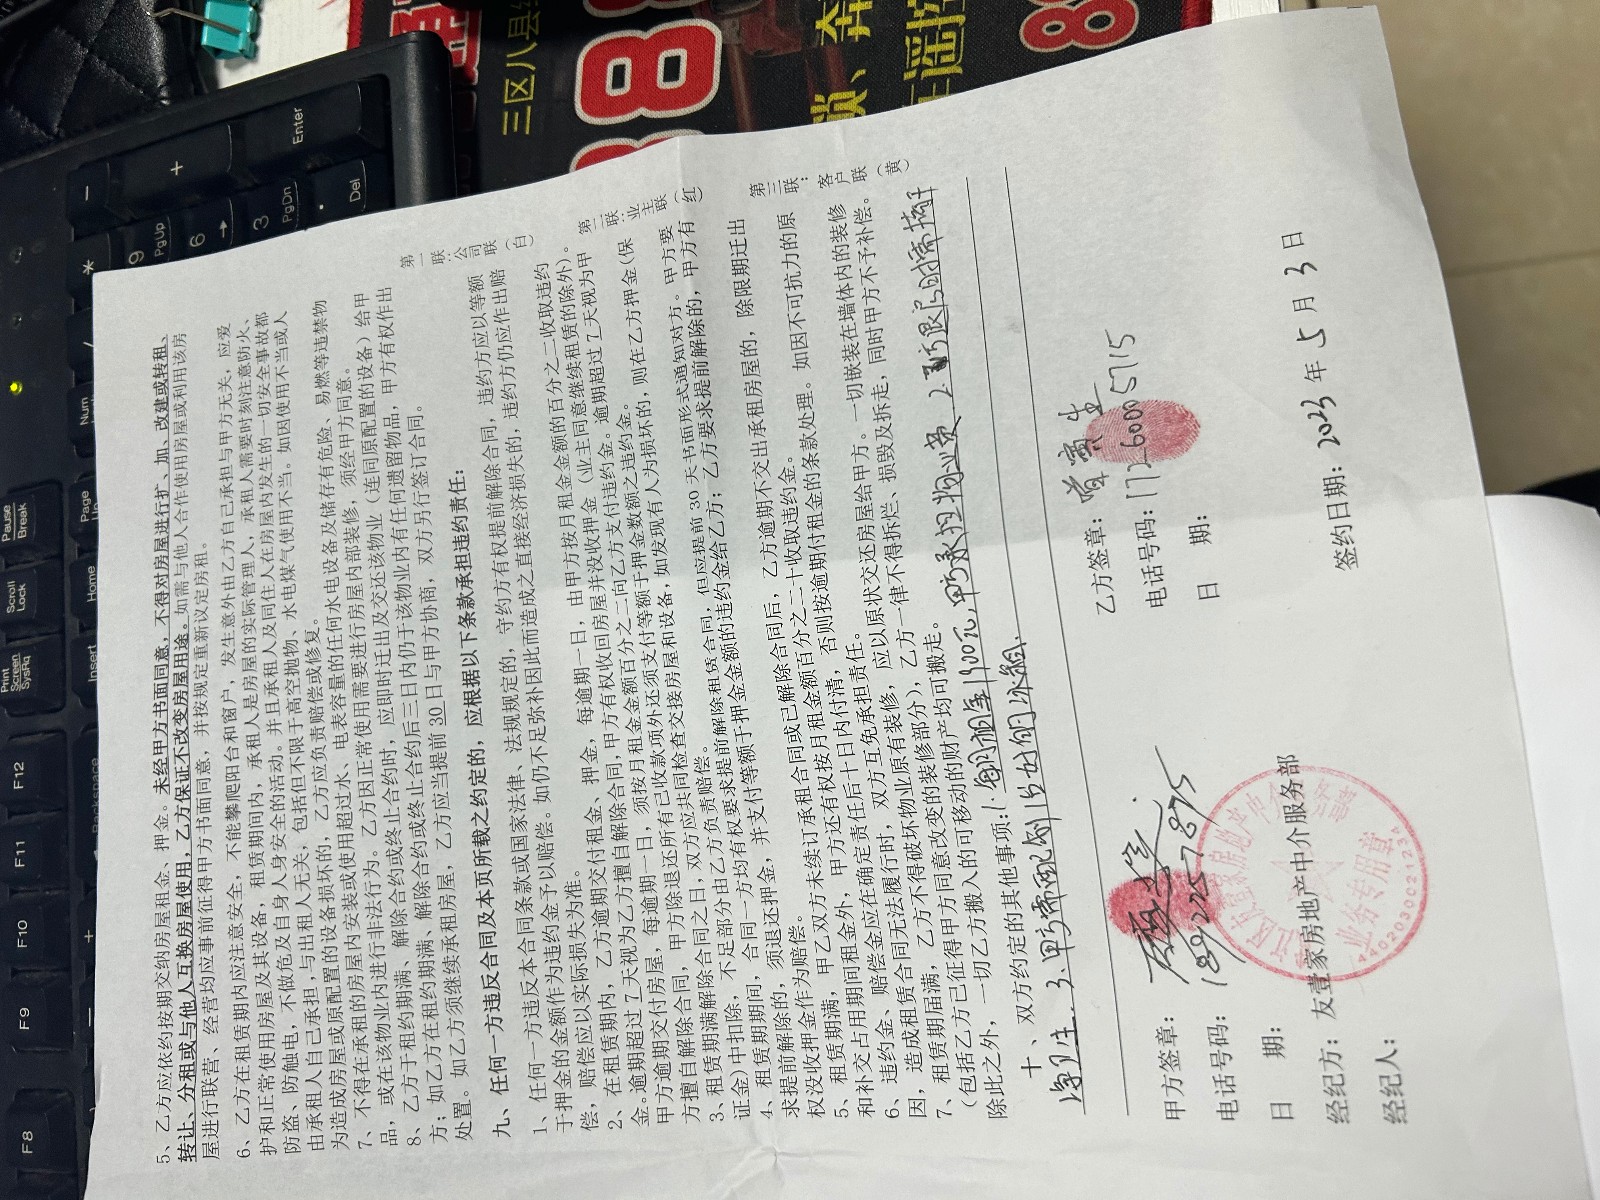 5、乙方应依约按期交纳房屋租金、押金。未经甲方书面同意，不得对房屋进行扩、加、改建或转租、
转让、分租或与他人互换房屋使用，乙方保证不改变房屋用途。如需与他人合作使用房屋或利用该房
屋进行联营、经营均应事前征得甲方书面同意，并按规定重新议定房租。
6、乙方在租赁期内应注意安全，不能攀爬阳台和窗户，发生意外由乙方自己承担与甲方无关，应爱
护和正常使用房屋及其设备，租赁期间内，承租人是房屋的实际管理人，承租人需要时刻注意防火、
防盗、防触电，不做危及自身人身安全的活动。并且承租人及同住人在房屋内发生的一切安全事故都
由承租人自己承担，与出租人无关，包括但不限于高空抛物、水电煤气使用不当。如因使用不当或人
为造成房屋或原配置的设备损坏的，乙方应负责赔偿或修复。
7、不得在承租的房屋内安装或使用超过水、电表容量的任何水电设备及储存有危险、易燃等违禁物
品，或在该物业内进行非法行为。乙方因正常使用需要进行房屋内部装修，须经甲方同意。
8、乙方于租约期满、解除合约或终止合约时，应即时迁出及交还该物业（连同原配置的设备）给甲
方；如乙方在租约期满、解除合约或终止合约后三日内仍于该物业内有任何遗留物品，甲方有权作出
处置。如乙方须继续承租房屋，乙方应当提前 30 日与甲方协商，双方另行签订合同。
第一联：公司联（白）
九、任何一方违反合同及本页所载之约定的，应根据以下条款承担违约责任：
1、任何一方违反本合同条款或国家法律、法规规定的，守约方有权提前解除合同，违约方应以等额
于押金的金额作为违约金予以赔偿。如仍不足弥补因此而造成之直接经济损失的，违约方仍应作出赔
偿，赔偿应以实际损失为准。
2、在租赁期内，乙方逾期交付租金、押金，每逾期一日，由甲方按月租金金额的百分之二收取违约
金。逾期超过 7 天视为乙方擅自解除合同，甲方有权收回房屋并没收押金（业主同意继续租赁的除外）。
甲方逾期交付房屋，每逾期一日，须按月租金金额百分之二向乙方支付违约金。逾期超过 7 天视为甲
方擅自解除合同，甲方除退还所有已收款项外还须支付等额于押金数额之违约金。
第二联：业主联（红）
3、租赁期满解除合同之日，双方应共同检查交接房屋和设备，如发现有人为损坏的，则在乙方押金（保
证金）中扣除，不足部分由乙方负责赔偿。
4、租赁期期间，合同一方均有权要求提前解除租赁合同，但应提前 30 天书面形式通知对方。甲方要
求提前解除的，须退还押金，并支付等额于押金金额的违约金给乙方；乙方要求提前解除的，甲方有
权没收押金作为赔偿。
5、租赁期满，甲乙双方未续订承租合同或已解除合同后，乙方逾期不交出承租房屋的，除限期迁出
和补交占用期间租金外，甲方还有权按月租金额百分之二十收取违约金。
6、违约金、赔偿金应在确定责任后十日内付清，否则按逾期付租金的条款处理。如因不可抗力的原
因，造成租赁合同无法履行时，双方互免承担责任。
第三联：客户联（黄）
7、租赁期届满，乙方不得破坏物业原有装修，应以原状交还房屋给甲方。一切嵌装在墙体内的装修
（包括乙方已征得甲方同意改变的装修部分），乙方一律不得拆烂、损毁及拆走，同时甲方不予补偿。
除此之外，一切乙方搬入的可移动的财产均可搬走。
十、双方约定的其他事项：1. 每月租金1100元，甲方承担物业费 2. 乙方退房时需搞干
净卫生. 3. 甲方需配
甲方签章：
电话号码：
日 期：
经纪方：友壹家房地产中介服务部
经纪人：
业务专用章
4402030021234
乙方签章：
电话号码：17260005715
日 期：
签约日期：2023 年 5 月 3 日
Print Screen SysRq
Scroll Lock
Pause Break
Insert
Home
Page Up
Num
/
*
-
9 PgUp
+
6 →
3 PgDn
Enter
. Del
F8
F9
F10
F11
F12
Backspace
三区八县
88